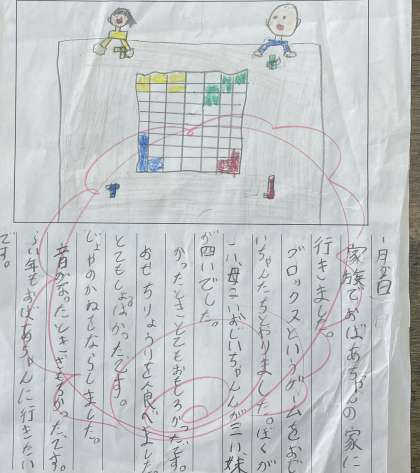 一月2日
家族でおばあちゃんの家に
行きました。
ブロックスというゲームをおじ
いちゃんたちとやりました。ぼくが
一い、母二い、おじいちゃんが三い、妹
が四いでした。
かったときとてもおもしろかったです。
おせちりょうりを食べました。
とてもしょぱかったです。
じょやのかねをならしました。
音がなったときぎもちかったです。
らい年もおばあちゃんに行きたい
です。